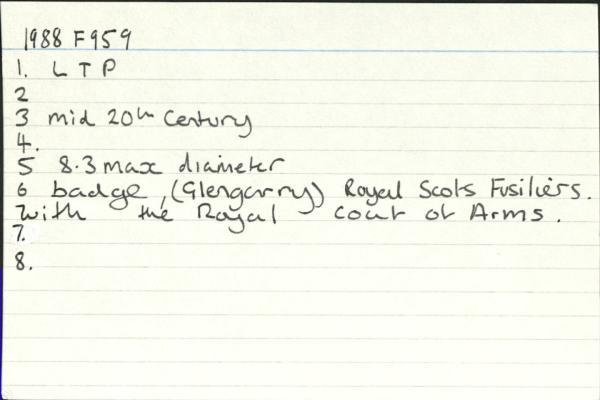 1988 F959
1. L T P
2
3 mid 20th Century
4.
5 8.3 max diameter
6 badge, (Glengarry) Royal Scots Fusiliers.
with the Royal coat of Arms.
7.
8.